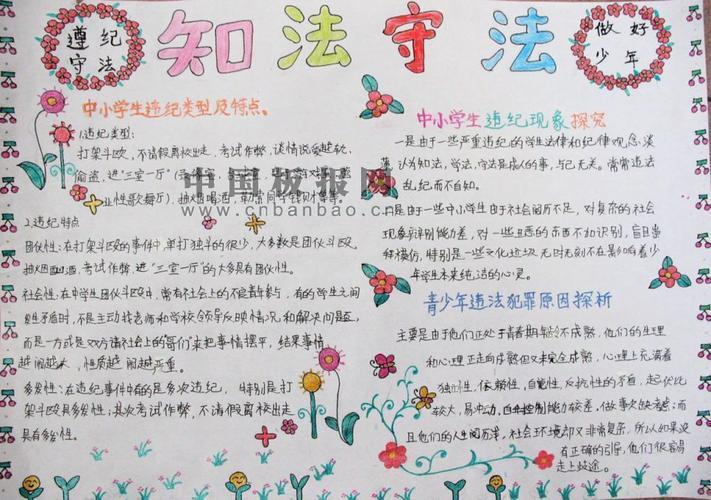 遵纪
守法
知法守法
做好
少年
中小学生违纪类型及特点。
1.违纪类型:
打架斗殴,不请假离校出走,考试作弊,谈情说爱越轨,
偷盗,进“三室一厅”
业性歌舞厅),抽烟喝酒,
中国板报网
www.cnbanbao.cn
2.违纪特点
团伙性:在打架斗殴的事件中,单打独斗的很少,大多数是团伙斗殴。
抽烟酗酒,考试作弊,进“三室一厅”的大多具有团伙性。
社会性:在中学生团伙斗殴中,常有社会上的不良青年参与,有的学生之间
发生矛盾时,不是主动找老师和学校领导反映情况和解决问题,
而是一方或是双方请社会上的“哥们”来把事情摆平,结果事情
越闹越大,性质越闹越严重。
多发性:在违纪事件中有的是多次违纪,特别是打
架斗殴具多发性;其次考试作弊,不请假离校出走
具有多发性。
中小学生违纪现象探究
一是由于一些严重违纪的学生法律和纪律观念淡
薄,认为知法,学法,守法是成人的事,与己无关。常常违法
乱纪而不自知。
二是由于一些中小学生由于社会阅历不足,对复杂的社会
现象辩别能力差,对一些丑恶的东西不加识别,盲目崇
拜模仿,特别是一些文化垃圾无时无刻不在影响着少
年学生本来纯洁的心灵。
青少年违法犯罪原因探析
主要是由于他们正处于青春期年龄不成熟,他们的生理
和心理正走向成熟但又未完全成熟,心理上充满着
独立性,依赖性,自觉性,反抗性的矛盾,起伏比
较大,易冲动,自控制能力较差,做事欠缺考虑;而
且他们的人生阅历浅,社会环境却又非常复杂,所以如果没
有正确的引导,他们很容易
走上歧途。